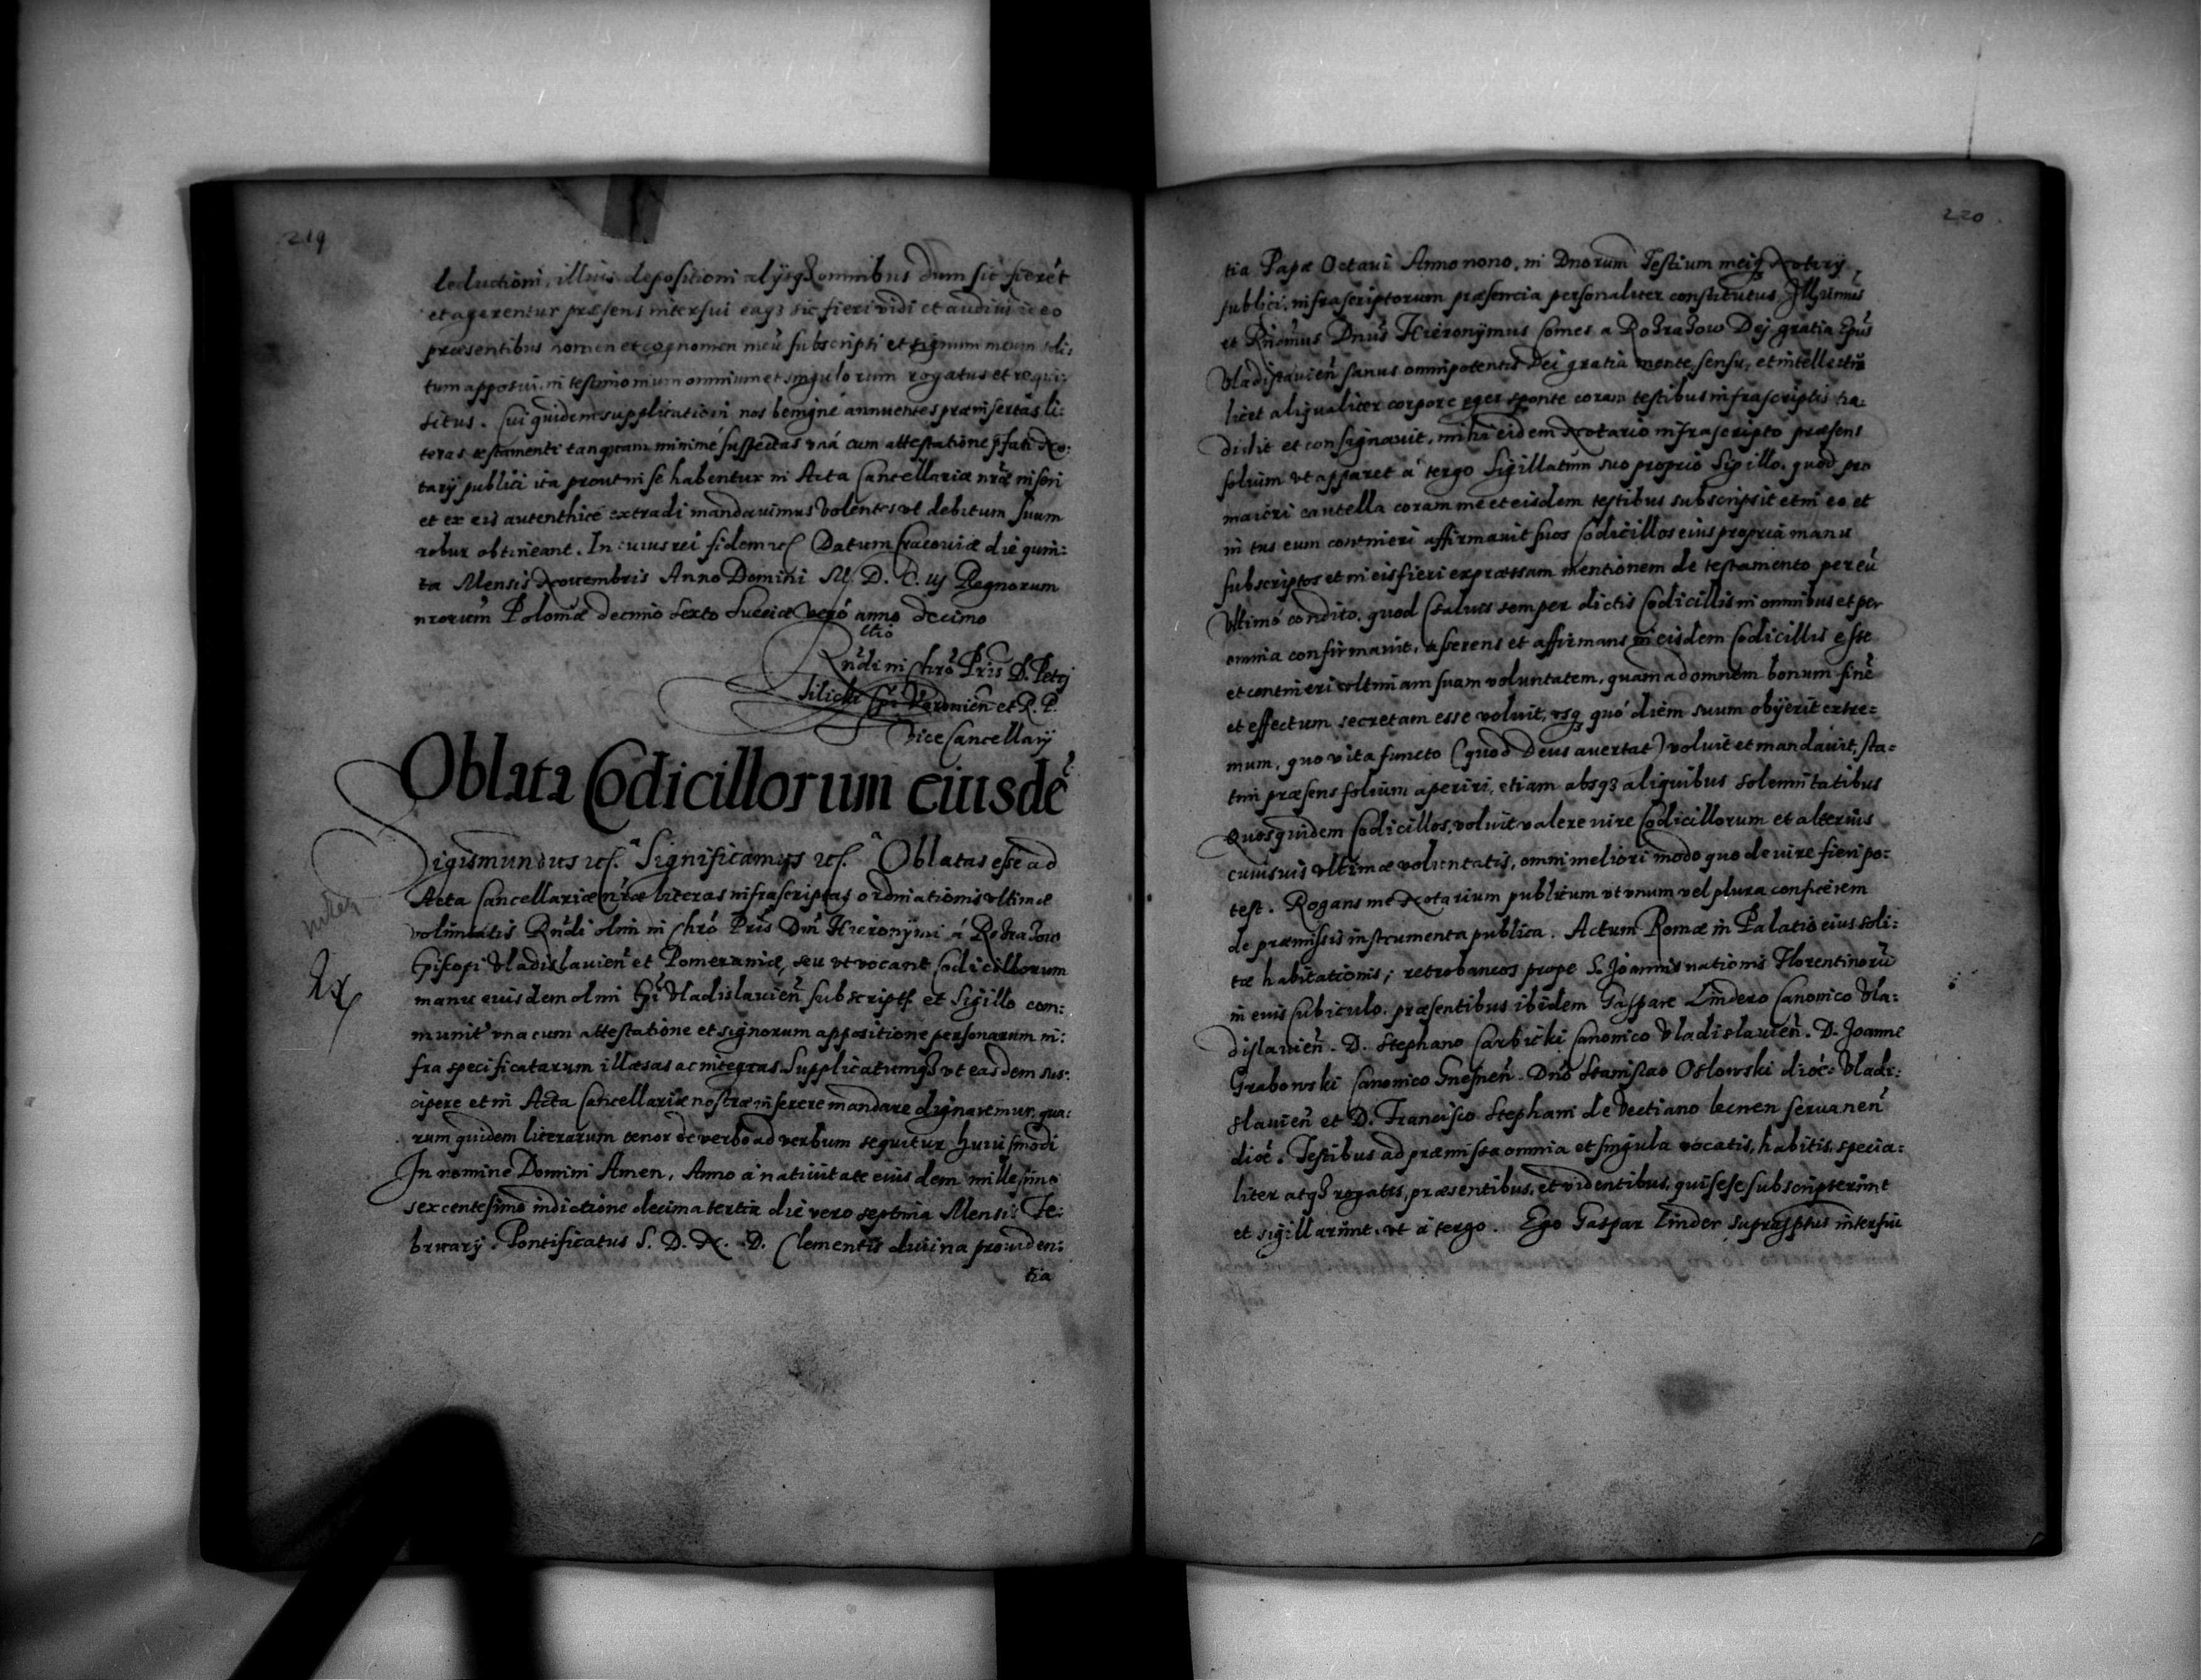 219
lectioni, illius depositioni alijsq3 omnibus dum sic fierẽt
et agerentur præsens interfui eaq3 sic fieri vidi et audivi ideo
præsentibus nomen et cognomen meũ subscripsi et signum meum soli:
tum apposui in testimonium omnium et singulorum rogatus et requi:
situs. Cui quidem supplicationi nos benignè annuentes præinsertas li:
teras testamenti tanquam minimè suspectas vnà cum attestatione p̃fati No:
tarij publici ita prout in se habentur in Acta Cancellariæ nr̃æ inseri
et ex eis autenthicè extradi mandauimus volentes vt debitum suum
robur obtineant. In cuius rei fidem etc. Datum Cracouiæ die quin:
ta Mensis Nouembris Anno Domini M. D. C. iij Regnorum
nrorum Poloniæ decimo sexto Sueciæ verò anno decimo
Rñdi in Chrõ Pris D. Petri
Tilicki Epĩ Varmieñ et R. P.
Vice Cancellarij
Oblata Codicillorum eiusdẽ
Sigismundus etc. Significamus etc. Oblatas esse ad
Acta Cancellariæ nr̃æ literas infrascriptas ordinationis vltimæ
voluntatis Rñdi olim in Chrõ Pris Dñi Hieronymi à Rozrazow
Episcopi Vladislauieñ et Pomeraniæ, seu vt vocant Codicillorum
manu eiusdem olim Epĩ Vladislauieñ subscript et Sigillo com:
munit vna cum attestatione et signorum appositione personarum in:
fra specificatarum illæsas ac integras Supplicatumq3 vt easdem sus:
cipere et in Acta Cancellariæ nostræ inserere mandare dignaremur, qua:
rum quidem literarum tenor de verbo ad verbum sequitur huiusmodi
In nomine Domini Amen. Anno à natiuitate eiusdem millesimo
sexcentesimo indictione decima tertia die vero septima Mensis Fe:
bruarij. Pontificatus S. D. N. D. Clementis diuina prouiden:
tia
220
tia Papæ Octaui Anno nono, in Dnorum Testium meiq3 Notarij
publici, infrascriptorum præsencia personaliter constitutus, Illr̃imus
et Rñdmus Dnũs Hieronÿmus Comes a Rozrazow Dej gratia Epũs
Vladislauieñ sanus omnipotentis Dei gratia mente, sensu, et intellectu
licet aliqualiter corpore eger sponte coram testibus infrascriptis tra:
didit et consignauit, mihi eidem Notario infrascripto præsens
folium vt apparet à tergo Sigillatum suo proprio Sigillo, quod pro
maiori cautella coram me et eisdem testibus subscripsit et in eo et
in tus eum contineri affirmauit suos Codicillos eius propria manu
subscriptos et in eis fieri expræssam mentionem de testamento per eũ
vltimò condito, quod (saluis semper dictis Codicillis in omnibus et per
omnia confirmauit, asserens et affirmans in eisdem Codicillis esse
et contineri vltimam suam voluntatem, quam ad omnem bonum finẽ
et effectum secretam esse voluit, vsq3 quò diem suum obijerit extre=
mum, quo vita functo (quod Deus auertat) voluit et mandauit, sta=
tim præsens folium aperiri, etiam absq3 aliquibus solemnitatibus
Quosquidem Codicillos, voluit valere iure Codicillorum et alterius
cuiusuis vltimæ voluntatis, omni meliori modo quo de iure fieri po=
test. Rogans me Notarium publicum vt vnum vel plura conficerem
de præmissis instrumenta publica. Actum Romæ in Palatio eius soli:
tæ habitationis; retrobancos prope S. Joannis nationis Florentinorũ
in eius cubiculo, præsentibus ibidem Gaspare Lindero Canonico Vla:
dislauieñ. D. Stephano Sarbicki Canonico Vladislauieñ. D. Joanne
Grabowski Canonico Gnesneñ. Dnõ Stanislao Oslowski dioẽc: Vladi:
slauieñ et D. Francisco Stephani de Vectiano
dioẽc. Testibus ad præmissa omnia et singula vocatis, habitis, specia:
liter atq3 rogatis, præsentibus, et videntibus, qui sese subscripserunt
et sigillarunt, vt à tergo. Ego Gaspar Linder suprascptus interfui